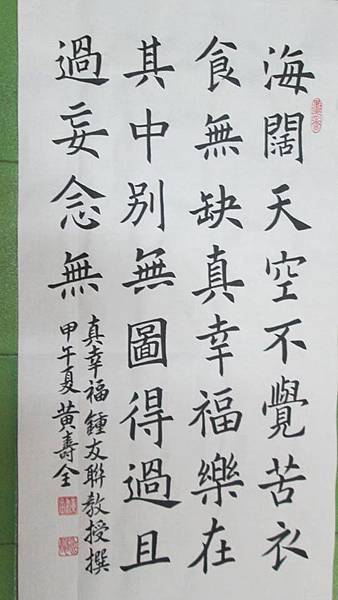 海闊天空不覺苦衣
食無缺真幸福樂在
其中別無圖得過且
過妄念無
真幸福鍾友聯教授撰
甲午夏黃壽全